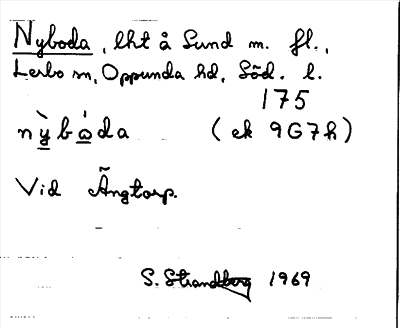 Nyboda, lht å Sund m. fl.,
Lerbo sn, Oppunda hd, Söd. l.
175
nỳbáda (ek 9G7h)
Vid Ängtorp.
S. Strandberg 1969